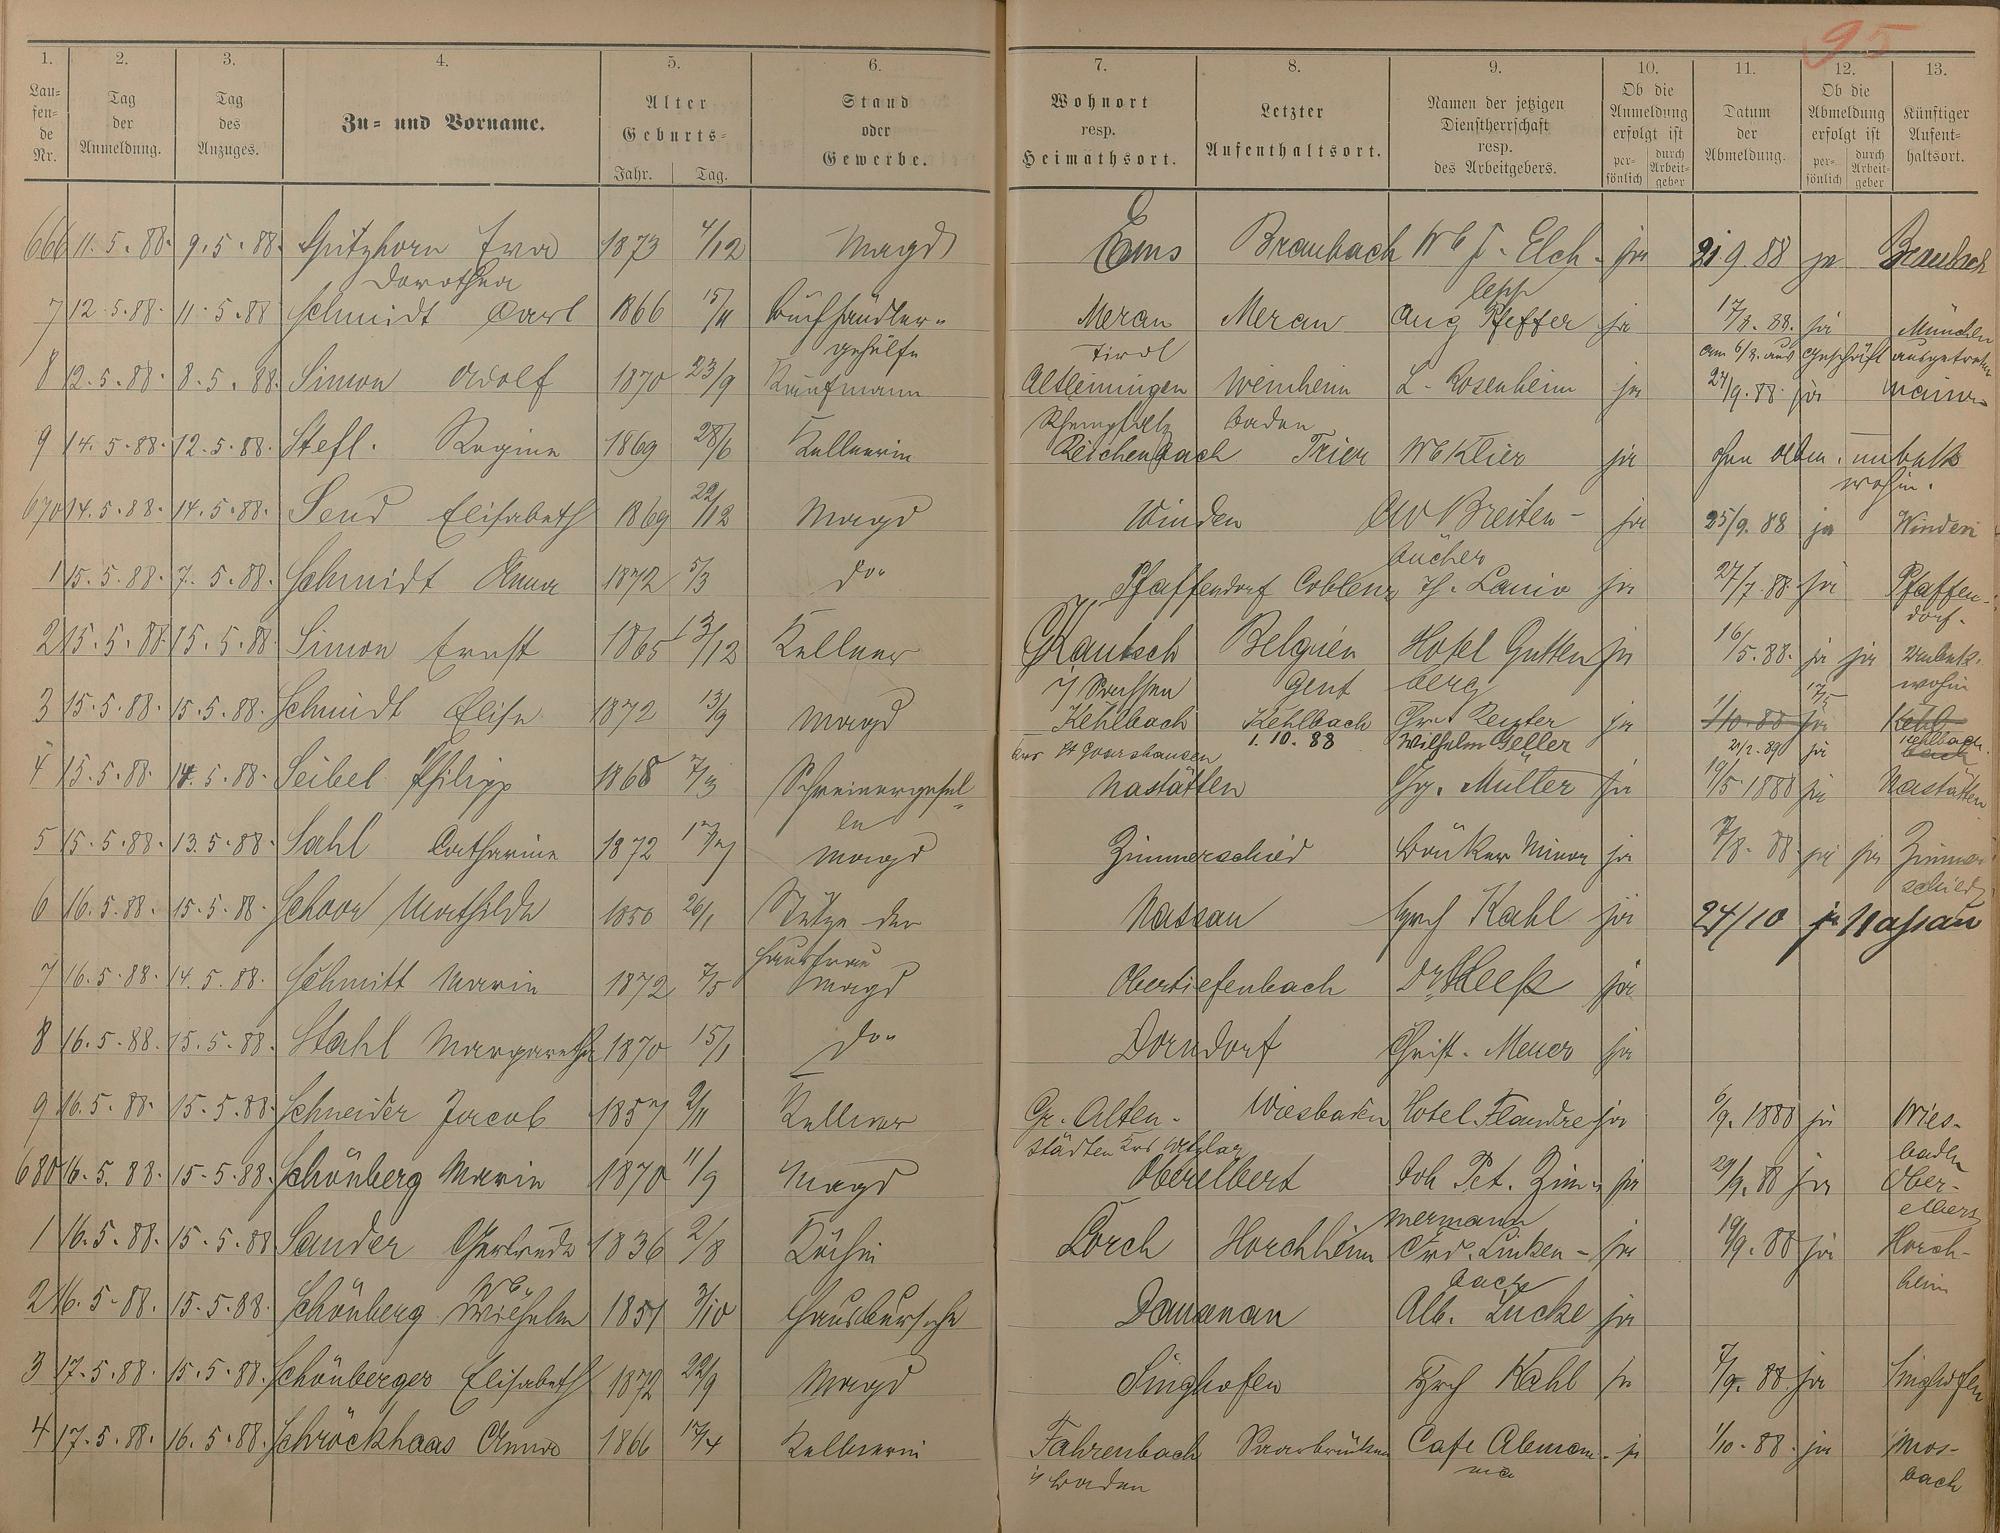 95
1. 2. 3. 4. 5. 6. 7. 8. 9. 10. 11. 12. 13.
Lau=fen=de Nr. Tag der Anmeldung. Tag des Anzuges. Zu= und Vorname. Alter Geburts= Jahr. Tag. Stand oder Gewerbe. Wohnort resp. Heimathsort. Letzter Aufenthaltsort. Namen der jetzigen Dienstherrschaft resp. des Arbeitgebers. Ob die Anmeldung erfolgt ist per=sönlich durch Arbeit=geber Datum der Abmeldung. Ob die Abmeldung erfolgt ist per=sönlich durch Arbeit=geber Künftiger Aufent=haltsort.
666 11.5.88. 9.5.88. Spitzhorn Eva 1873 4/12 Magd Ems Braubach W J. Elch- ja 21 9.88 ja Braubach
Dorothea
7 12.5.88. 11.5.88 Schmidt Carl 1866 15/11 Buchhändler= Meran Meran Aug Pfeffer ja 17/8.88. ja München
gehülfe Tirol am 6/8. aus Geschäft ausgetreten
8 12.5.88. 8.5.88. Simon Adolf 1870 23/9 Kaufmann Altleiningen Weinheim L. Rosenheim ja 24/9.88. ja Mainz
Rheinpfalz Baden
9 14.5.88. 12.5.88. Stefl. Regine 1869 28/6 Kellnerin Reichenbach Trier Wb Klier ja ohne Abm. unbek
wohin.
670 14.5.88. 14.5.88. Send Elisabeth 1869 22/12 Magd Winden Av Breiten- ja 25/9.88 ja Winden
bücher
1 15.5.88. 7.5.88. Schmidt Anna 1872 5/3 do. Pfaffendorf Coblenz Th. Lanio ja 27/7.88. ja Pfaffen-
dorf.
2 15.5.88. 15.5.88. Simon Ernst 1865 13/12 Kellner Kautsch Belgien Hotel Gutten ja 16/5.88. ja ja Unbek.
i/ Preussen Gent berg 17/5 wohin
3 15.5.88. 15.5.88. Schmidt Elise 1872 13/9 Magd Kehlbach Kehlbach Chr Reuter ja 1/10.88 ja Kehl-
Krs St Goarshausen 1.10.88 Wilhelm Geller 21/2.89 ja Kehlbach. bach
4 15.5.88. 14.5.88. Seibel Philipp 1868 7/3 Schreinergesel= Nastätten Gg. Müller ja 19/5 1888 ja Nastätten
len
5 15.5.88. 13.5.88. Sahl Catharine 1872 Magd Zimmerschied Bönker Minor ja 7/8.88. ja ja Zimmer
schied
6 16.5.88. 15.5.88. Schoor Mathilde 1850 26/1 Stütze der Nassau Hrch Kahl ja 24/10 ja Nassau
Hausfrau
7 16.5.88. 14.5.88. Schmitt Marie 1872 7/5 Magd Obertiefenbach Dr Reeß ja
8 16.5.88. 15.5.88. Stahl Margaretha 1870 15/1 do. Dorndorf Christ. Meuer ja
9 16.5.88. 15.5.88. Schneider Jacob 1857 2/11 Kellner Gr. Alten- Wiesbaden Hotel Flandre ja 6/9.1888 ja Wies-
städten Krs Wetzlar baden
680 16.5.88. 15.5.88. Schönberg Marie 1870 11/9 Magd Oberelbert Joh Pet. Zim= ja 29/9.88 ja Ober-
mermann elbert
1 16.5.88. 15.5.88 Sander Gertrude 1836 2/8 Köchin Lorch Horchheim Frd. Linken- ja 19/9.88 ja Horch-
Wb bach heim
2 16.5.88. 15.5.88. Schönberg Wilhelm 1851 3/10 Hausbursche Dausenau Alb. Lucke ja
3 17.5.88. 15.5.88. Schönberger Elisabeth 1872 22/9 Magd Singhofen Hrch Kahl ja 7/9.88. ja Singhofen
4 17.5.88. 16.5.88. Schröckhaas Anna 1866 Kellnerin Fahrenbach Saarbrücken Cafe Aleman- ja 1/10.88. ja Mos-
i/ Baden nia bach